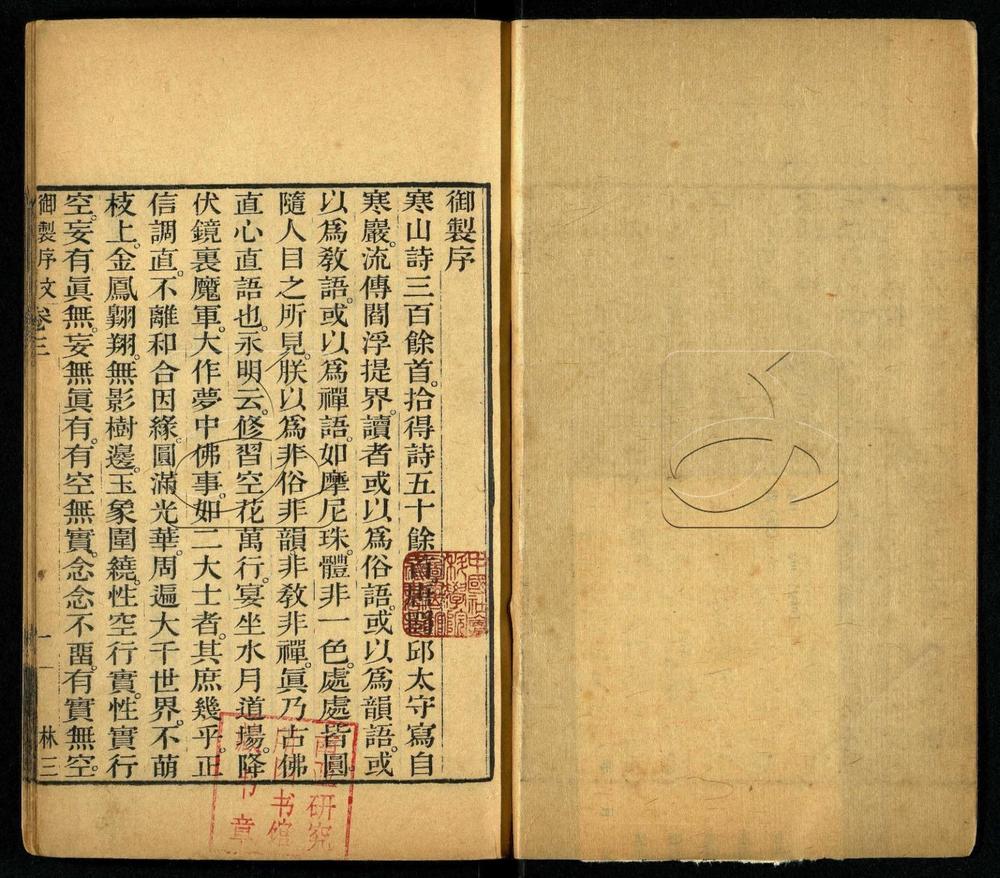 御製序
寒山詩三百餘首。拾得詩五十餘首。唐閭邱太守寫自
寒巖。流傳閻浮提界。讀者或以爲俗語。或以爲韻語。或
以爲敎語。或以爲禪語。如摩尼珠。體非一色。處處皆圓
隨人目之所見。朕以爲非俗非韻非敎非禪。眞乃古佛
直心直語也。永明云。修習空花萬行。宴坐水月道場。降
伏鏡裏魔軍。大作夢中佛事。如二大士者。其庶幾乎。正
信調直。不離和合因緣。圓滿光華。周遍大千世界。不萌
枝上。金鳳翺翔。無影樹邊。玉象圍繞。性空行實。性實行
空。妄有眞無。妄無眞有。有空無實。念念不畱。有實無空。
御製序文 卷三 一 林三
中國社會
科學院
研究
书馆
书章